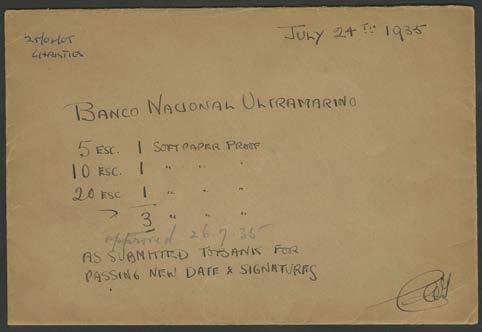 25/02/05
CHRISTIES
JULY 24TH 1935
BANCO NACIONAL ULTRAMARINO
5 ESC. 1 SOFT PAPER PROOF
10 ESC. 1 " " "
20 ESC 1 " " "
3 " " "
approved 26.7.35
AS SUBMITTED TO BANK FOR
PASSING NEW DATE & SIGNATURES